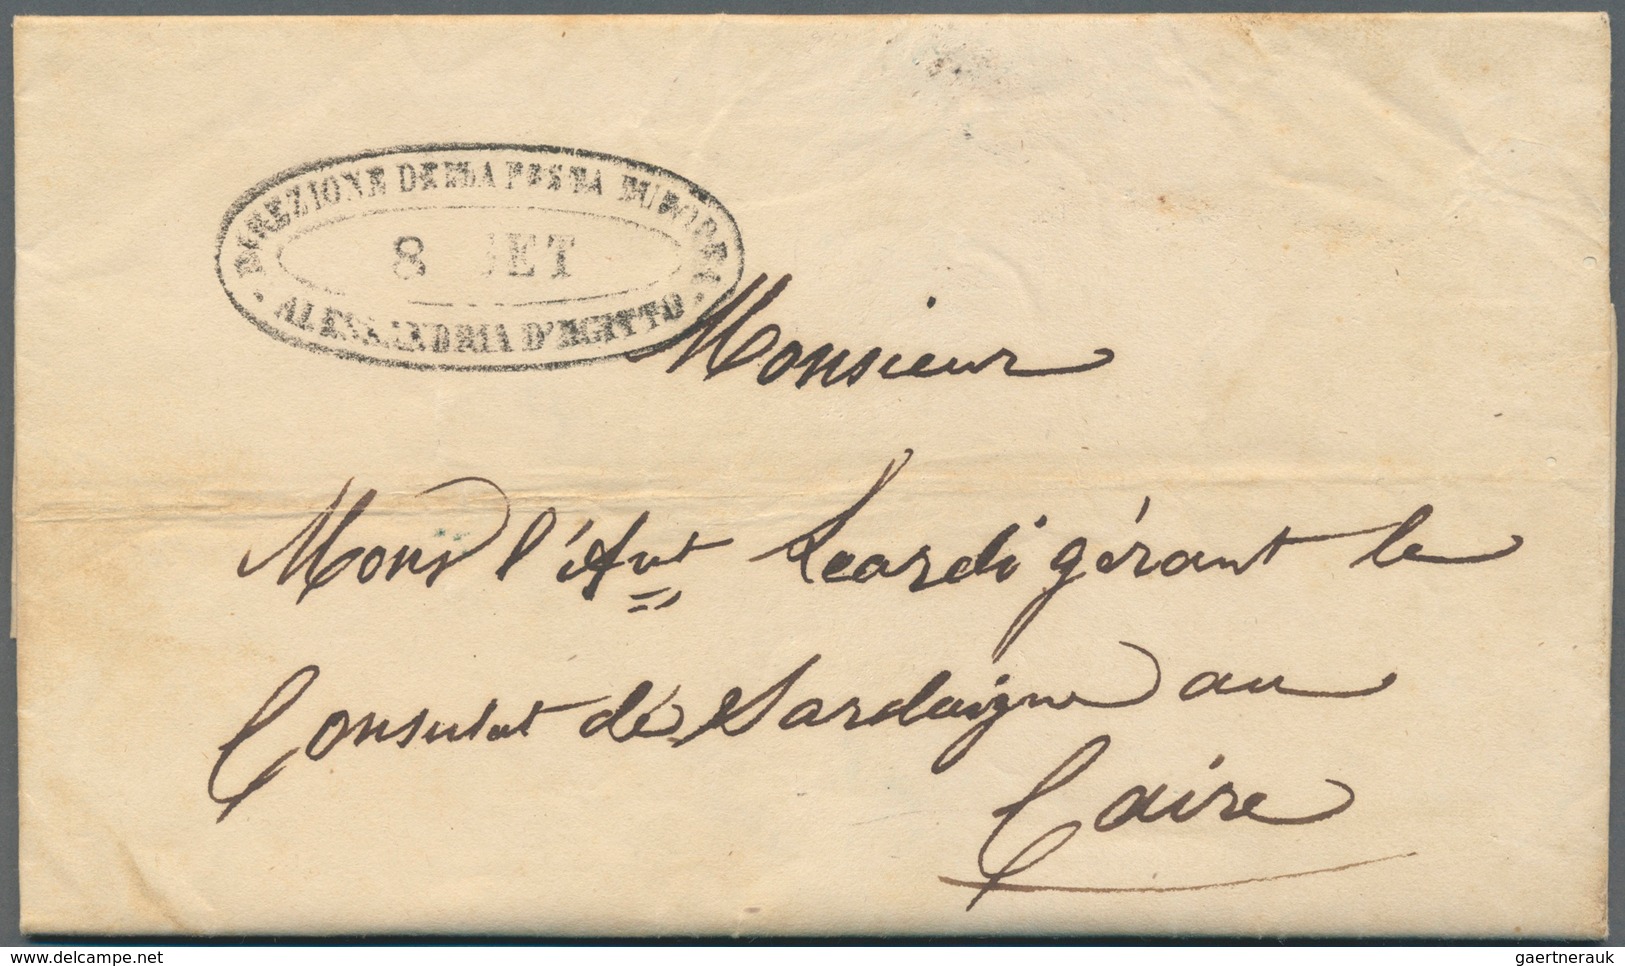 DIREZIONE DELLA POSTA EUROPEA
8 SET
ALESSANDRIA D'EGITTO
Monsieur
Mons l'Avt Leardi gérant le
Consulat de Sardaigne au
Caire
www.delcampe.net
gaertnerauk